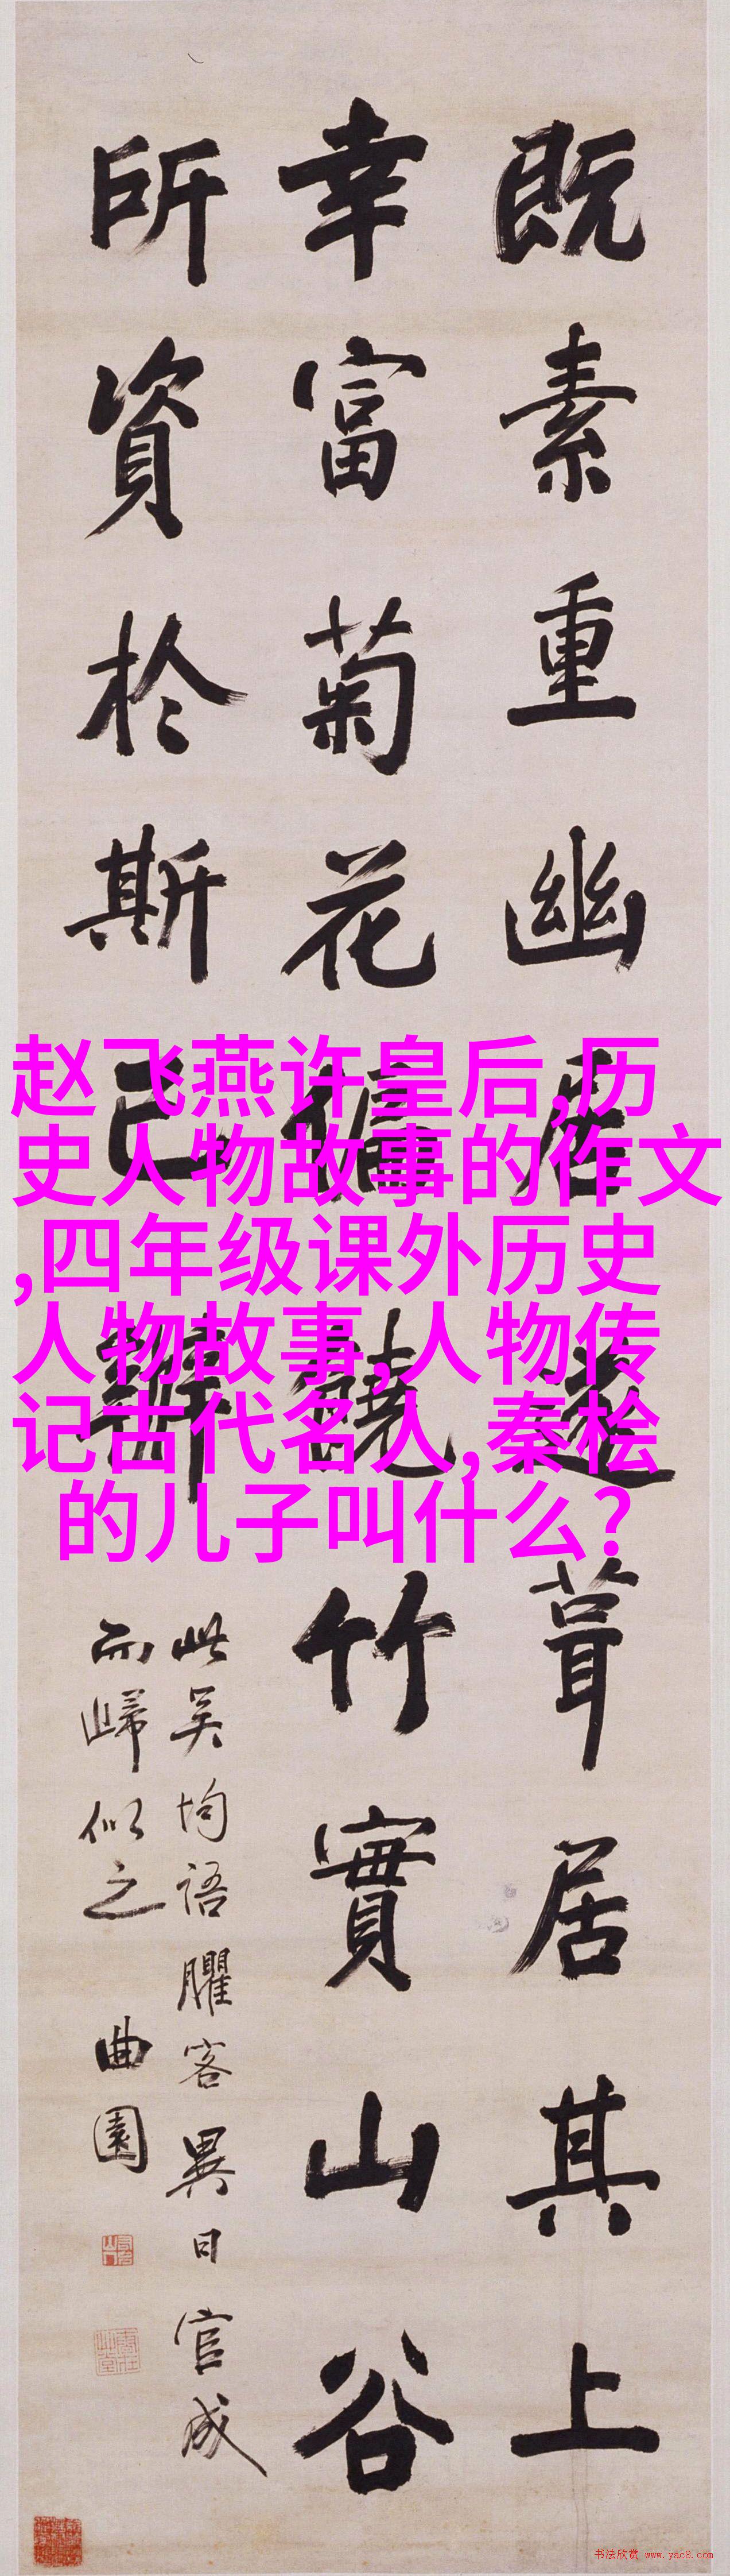 既素重幽居遂葺居其上
幸富菊花偏饒竹實山谷
所資於斯已辦
此吳均語臞客異日官成
而歸似之 曲園
赵飞燕许皇后,历
史人物故事的作文
,四年级课外历史
人物故事,人物传
记古代名人,秦桧
的儿子叫什么?
书法欣赏 www.yac8.com